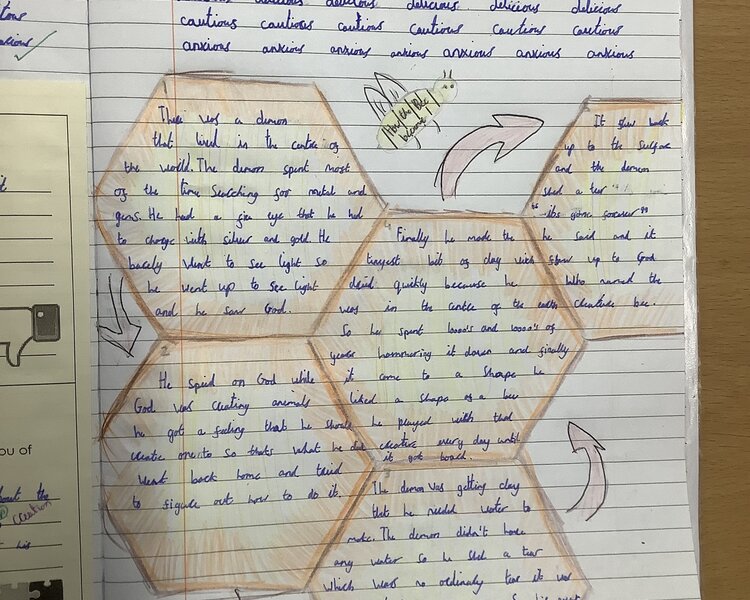 delicious delicious delicious delicious delicious
cautious cautious cautious cautious cautious cautious
anxious anxious anxious anxious anxious anxious anxious
How the Bee
became
1
There was a demon
that lived in the centre of
the world. The demon spent most
of the time searching for metal and
gems. He had a fire eye that he had
to change with silver and gold. He
barely went to see light so
he went up to see light
and he saw God.
2
He spied on God while
God was creating animals
he got a feeling that he should
create one to so thats what he did
went back home and tried
to figure out how to do it.
The demon was getting clay
that he needed water to
make. The demon didn't have
any water so he shed a tear
which was no ordinary tear it was
4
Finally he made the
tinyest bit of clay wich
dried quikly because he
was in the centre of the earth
So he spent 1000's and 1000's of
years hammering it down and finally
it came to a shape he
liked a shape of a bee
he played with that
creature every day until
it got board.
It flew back
up to the surface
and the demon
shed a tear
"its gone forever"
he said and it
flew up to God
who named the
creature bee.
ou of
bout the
his